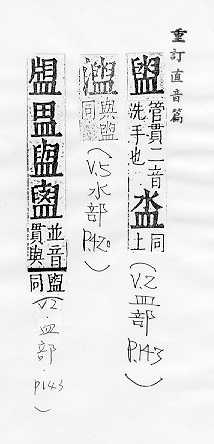 重訂直音篇
盥 管貫二音
洗手也
同
上
(V.2 皿部 P.143)
與盥
同
(V.5 水部 P.120)
並音
貫與
盥
同
(V2.皿部.P143)